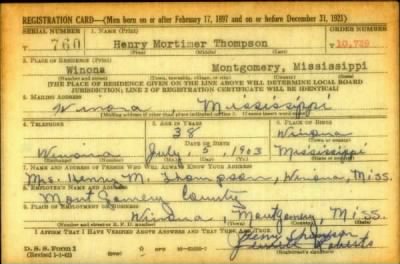 REGISTRATION CARD—(Men born on or after February 17, 1897 and on or before December 31, 1921)
SERIAL NUMBER 1. NAME (Print) ORDER NUMBER
T 760 Henry Mortimer Thompson T 10,739
2. PLACE OF RESIDENCE (Print)
Winona Montgomery, Mississippi
(Number and street) (Town, township, village, or city) (County) (State)
[THE PLACE OF RESIDENCE GIVEN ON THE LINE ABOVE WILL DETERMINE LOCAL BOARD
JURISDICTION; LINE 2 OF REGISTRATION CERTIFICATE WILL BE IDENTICAL]
3. MAILING ADDRESS
Winona Mississippi
[Mailing address if other than place indicated on line 2. If same insert word same]
4. TELEPHONE 5. AGE IN YEARS 6. PLACE OF BIRTH
38 Winona
DATE OF BIRTH
Winona July 5 1903 Mississippi
7. NAME AND ADDRESS OF PERSON WHO WILL ALWAYS KNOW YOUR ADDRESS
Mrs. Henry M. Thompson, Winona, Miss.
8. EMPLOYER'S NAME AND ADDRESS
Montgomery County
9. PLACE OF EMPLOYMENT OR BUSINESS
Winona, Montgomery, Miss.
(Number and street or R. F. D. number) (Town) (County) (State)
I AFFIRM THAT I HAVE VERIFIED ABOVE ANSWERS AND THAT THEY ARE TRUE.
D. S. S. Form 1